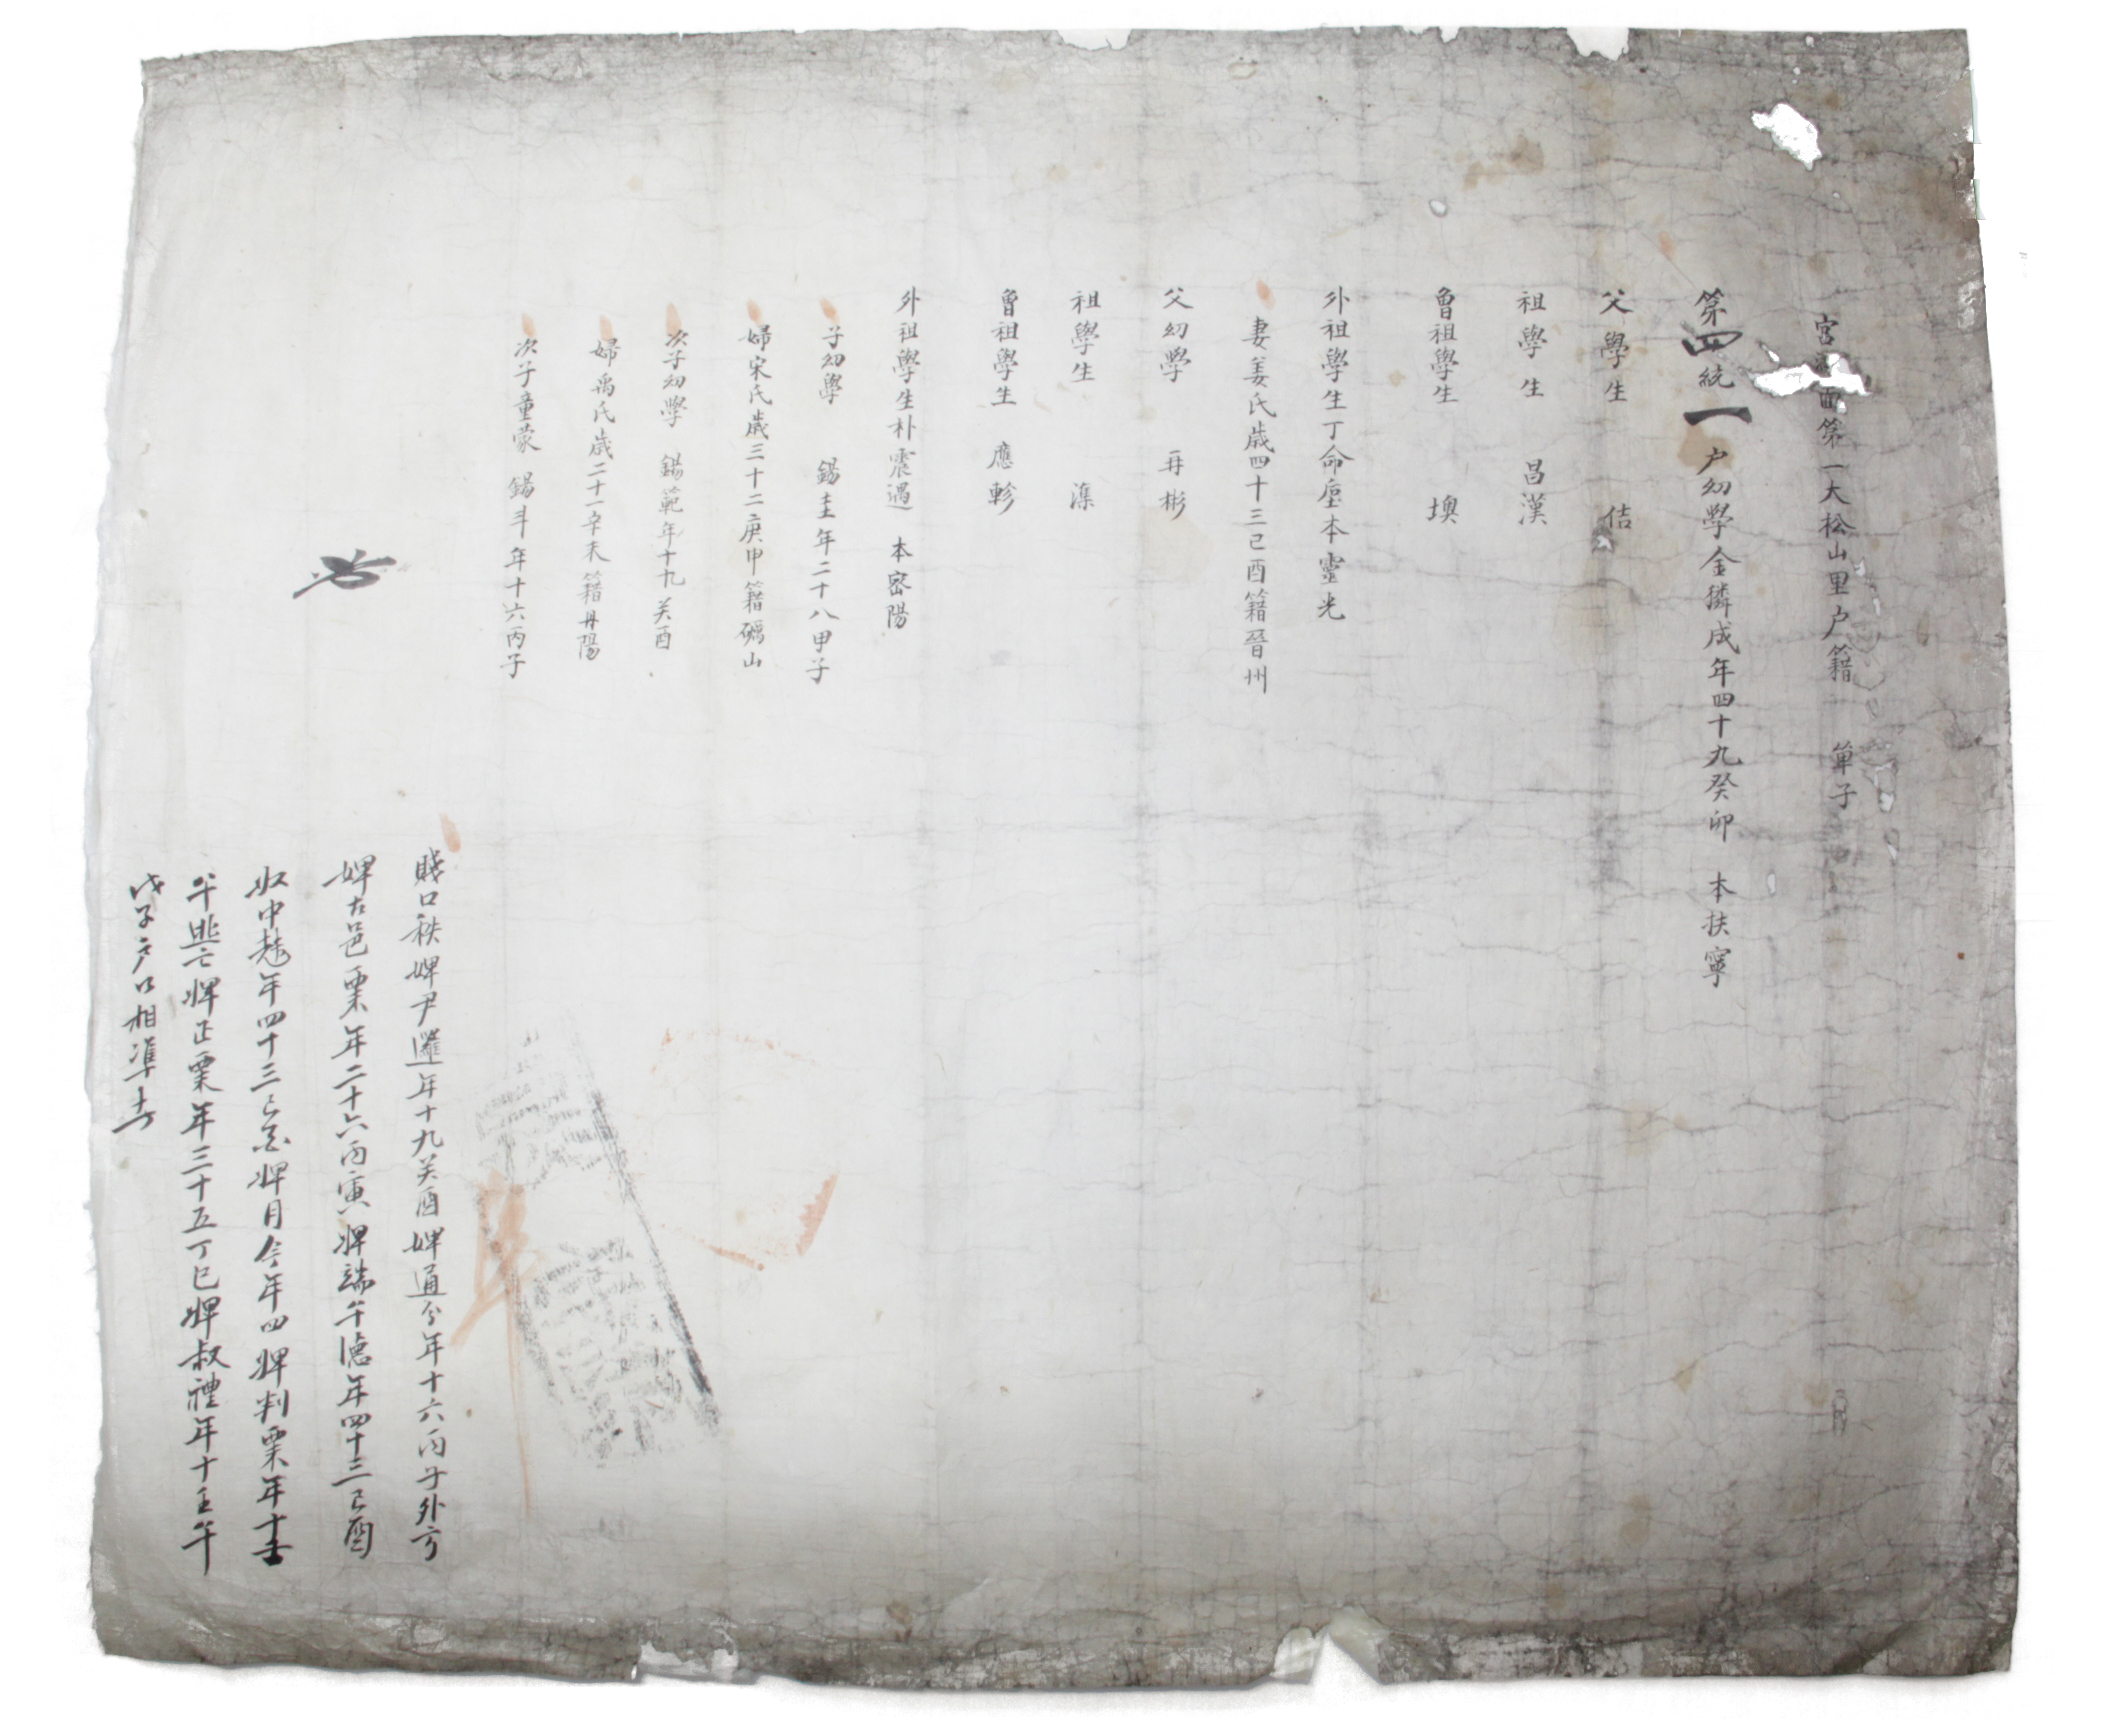 宮 面第一大松山里户籍 單子
第四統一户幼學金獜成年四十九癸卯 本扶寧
父學生 佶
祖學生 昌漢
曾祖學生 墺
外祖學生丁命垕本靈光
妻姜氏歲四十三己酉籍晉州
父幼學 再彬
祖學生 濼
曾祖學生 應軫
外祖學生朴震遇 本密陽
子幼學 錫圭年二十八甲子
婦宋氏歲三十二庚申籍礪山
次子幼學 錫範年十九癸酉
婦禹氏歲二十一辛未籍丹陽
次子童蒙 錫斗年十六丙子
賤口秩婢尹邏年十九癸酉婢通分年十六丙子外方
婢古邑栗年二十六丙寅婢端午德年四十三己酉
奴中 年四十三己酉婢月今年四 婢判栗年十 壬
午逃亡婢正栗年三十五丁巳婢叔禮年十 壬午
戊子户口相準 者